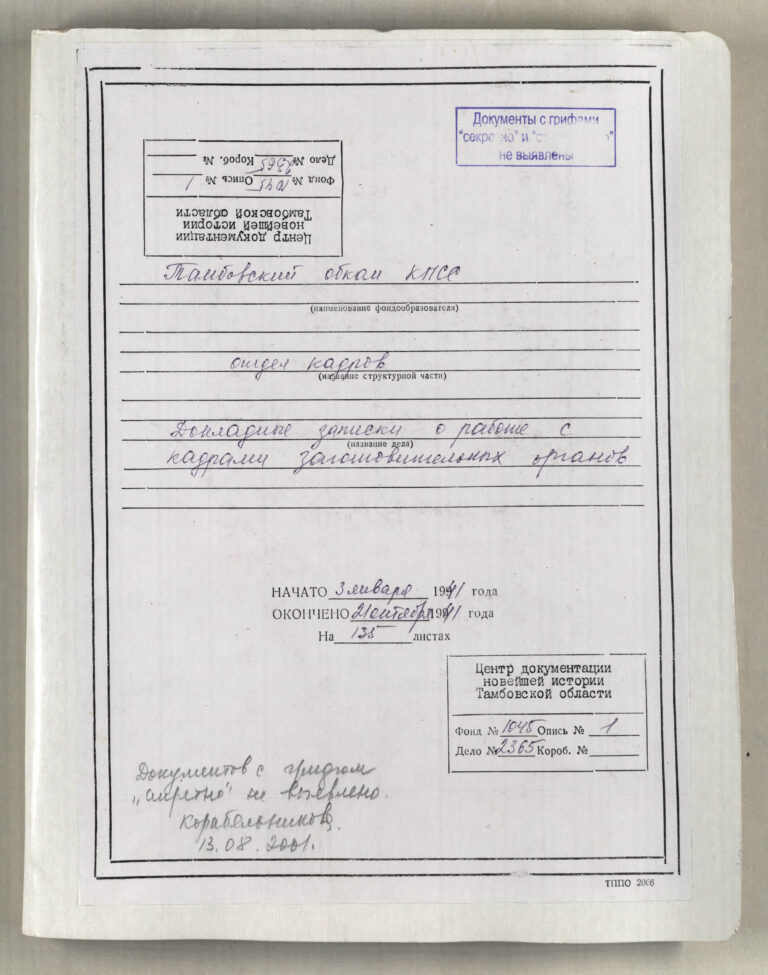 Документы с грифами
"секретно" и "с
не выявлены
Центр документации
новейшей истории
Тамбовской области
Фонд № 1045 Опись № 1
Дело № 2365 Короб. №
Тамбовский обком КПСС
(наименование фондообразователя)
отдел кадров
(название структурной части)
Докладные записки о работе с
(название дела)
кадрами заготовительных органов
НАЧАТО 3 января 1941 года
ОКОНЧЕНО 21 октября 1941 года
На 135 листах
Центр документации
новейшей истории
Тамбовской области
Фонд № 1045 Опись № 1
Дело № 2365 Короб. №
Документов с грифом
„секретно" не выявлено.
Корабельникова
13.08.2001.
ТППО 2066